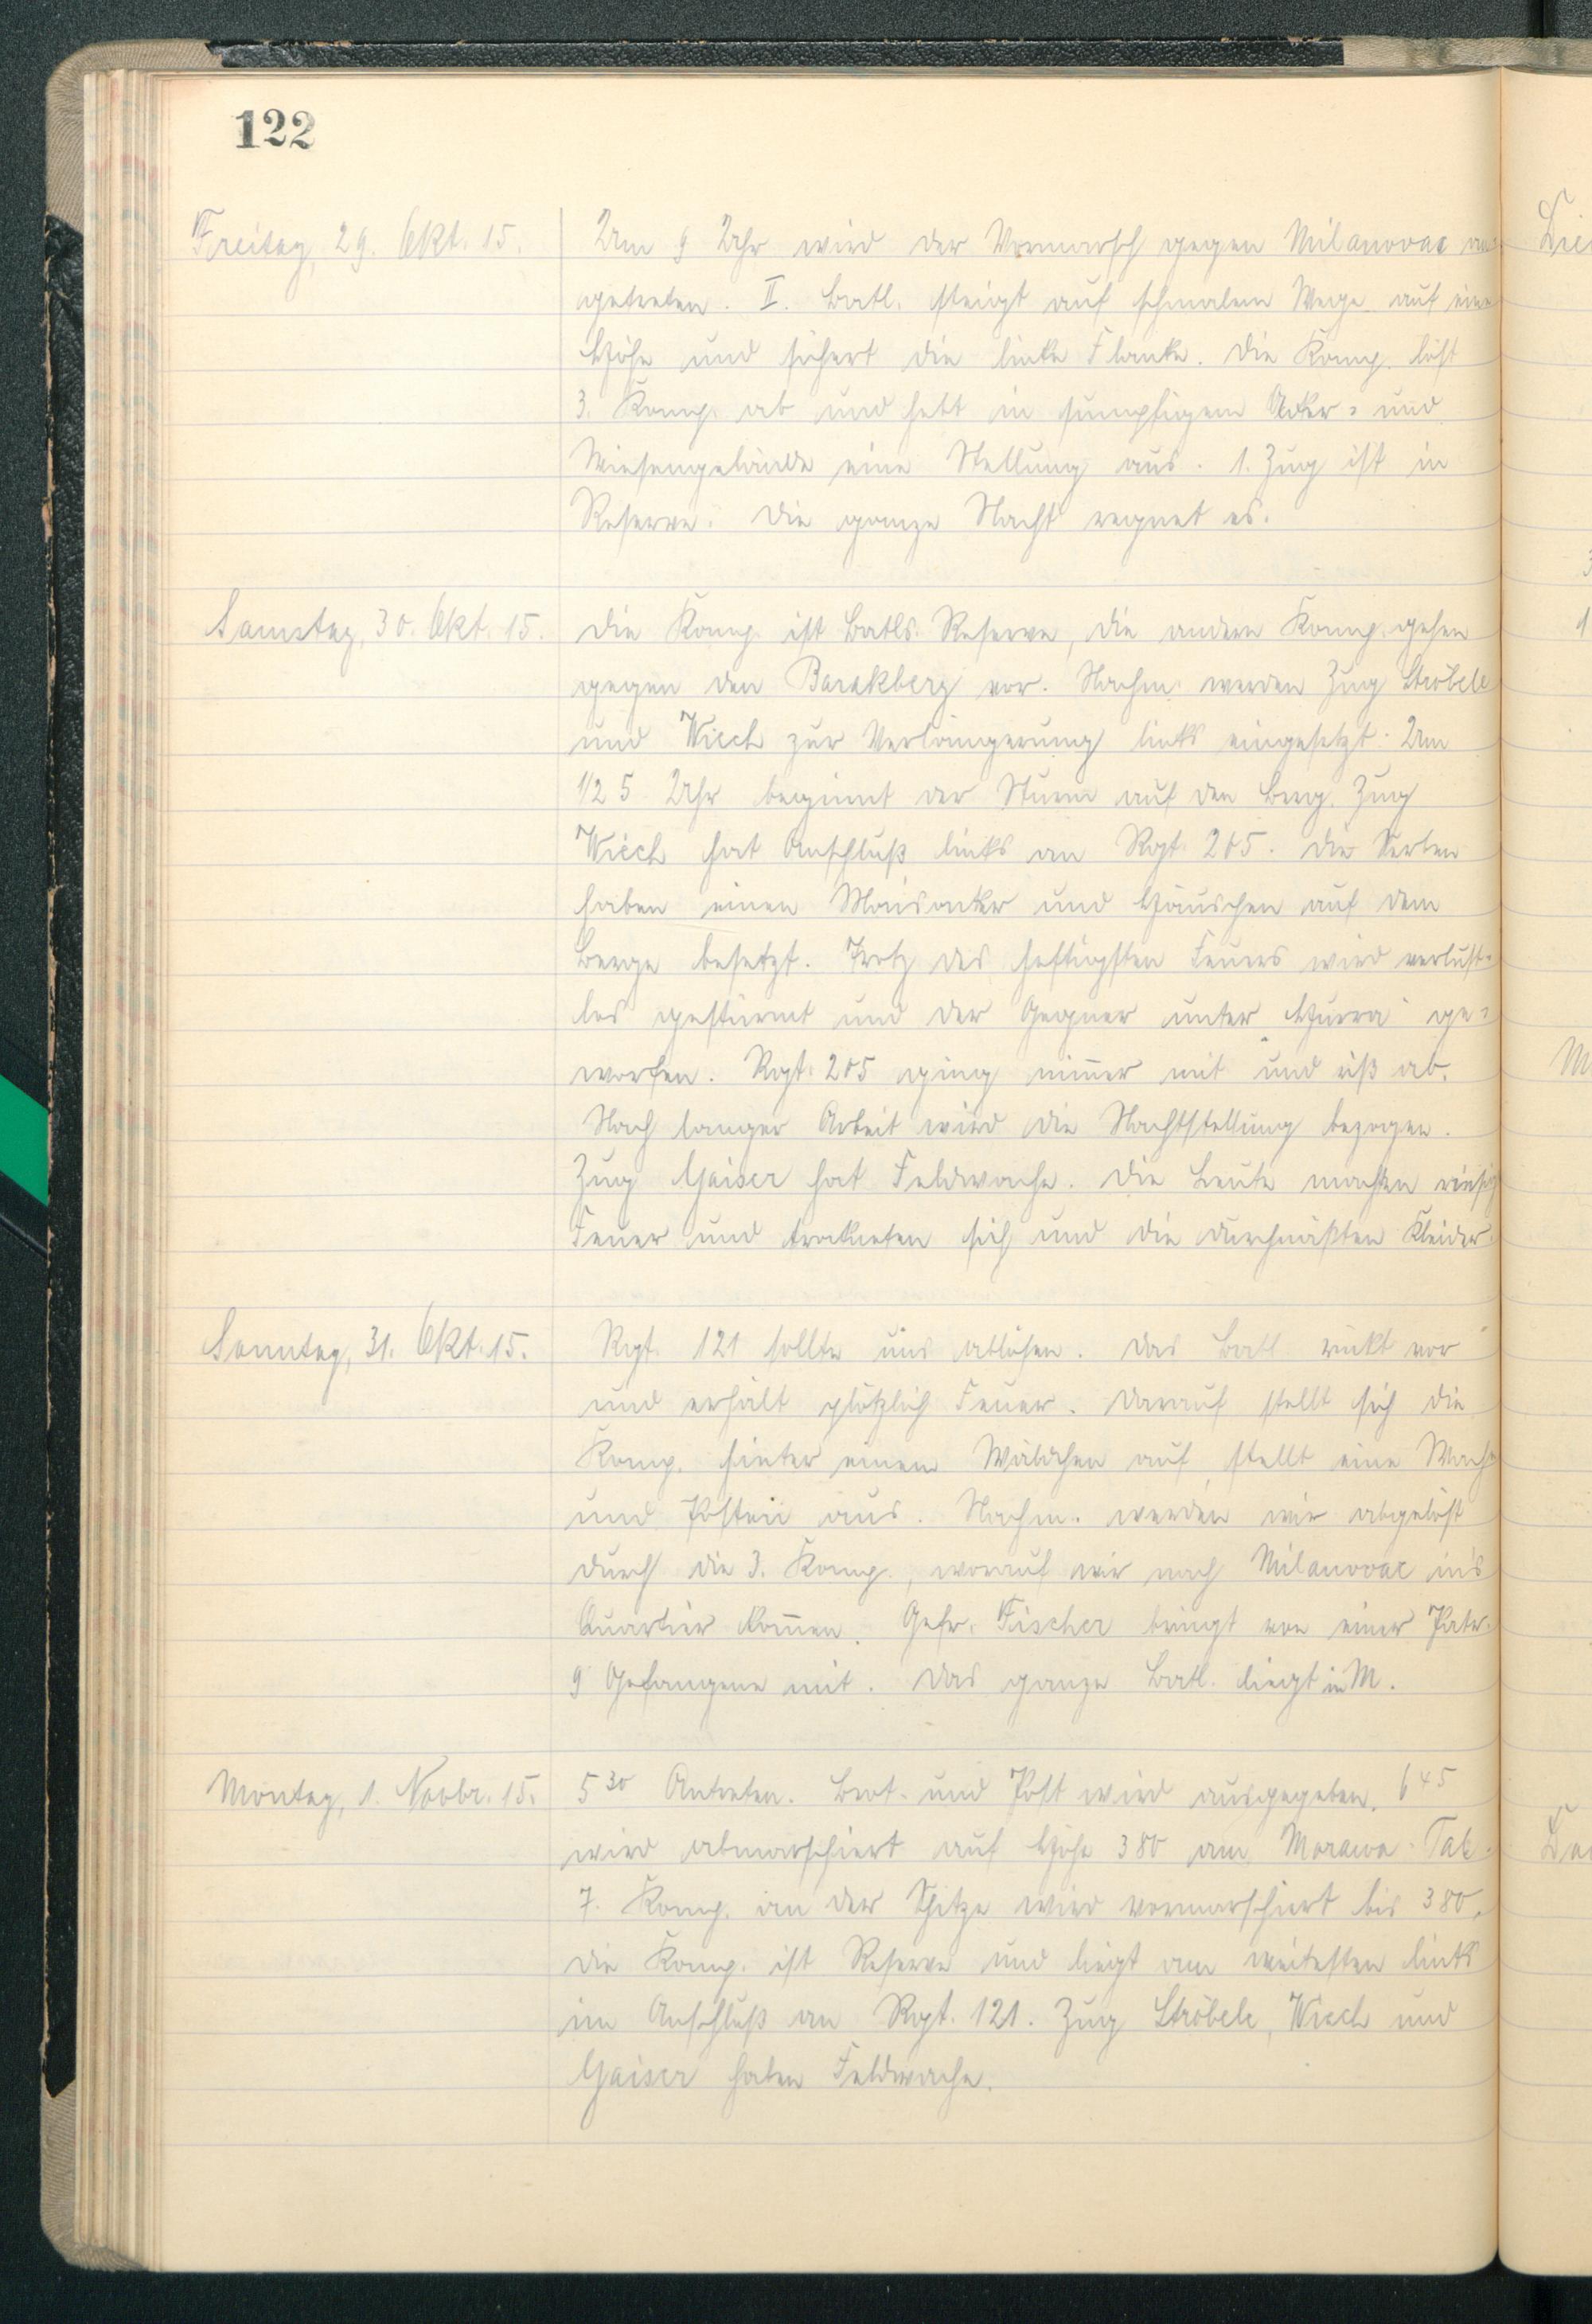 122
Freitag, 29. Okt. 15.
Um 9 Uhr wird der Vormarsch gegen Milanovac an-
getreten. II. Batl. steigt auf schmalem Wege auf eine
Höhe und sichert die linke Flanke. Die Komp. löst
3. Komp. ab und hebt in sumpfigem Acker- und
Wiesengelände eine Stellung aus. 1. Zug ist in
Reserve. Die ganze Nacht regnet es.
Samstag, 30. Okt. 15.
Die Komp. ist Batls. Reserve, die andern Komp. gehen
gegen den Barakberg vor. Nachm. werden Zug Ströbele
und Wiech zur Verlängerung links eingesetzt. Um
1/2 5 Uhr beginnt der Sturm auf den Berg. Zug
Wiech hat Anschluß links an Rgt. 205. Die Serben
haben einen Maisacker und Häuschen auf dem
Berge besetzt. Trotz des heftigsten Feuers wird verlust-
los gestürmt und der Gegner unter Hurra ge-
worfen. Rgt. 205 ging nimmer mit und riß ab.
Nach langer Arbeit wird die Nachtstellung bezogen.
Zug Gaiser hat Feldwache. Die Leute machten riesig
Feuer und trockneten sich und die durchnäßten Kleider.
Sonntag, 31. Okt. 15.
Rgt. 121 sollte uns ablösen. Das Batl. rückt vor
und erhält plötzlich Feuer. Darauf stellt sich die
Komp. hinter einem Wäldchen auf, stellt eine Wache
und Posten aus. Nachm. werden wir abgelöst
durch die 3. Komp., worauf wir nach Milanovac ins
Quartier kommen. Gefr. Fischer bringt von einer Patr.
9 Gefangene mit. Das ganze Batl. liegt in M.
Montag, 1. Novbr. 15.
5 30 Antreten. Brot- und Post wird ausgegeben. 6 45
wird abmarschiert auf Höhe 380 am Morawa-Tal.
7. Komp. an der Spitze wird vormarschiert bis 380,
die Komp. ist Reserve und liegt am weitesten links
im Anschluß an Rgt. 121. Zug Ströbele, Wiech und
Gaiser haben Feldwache.